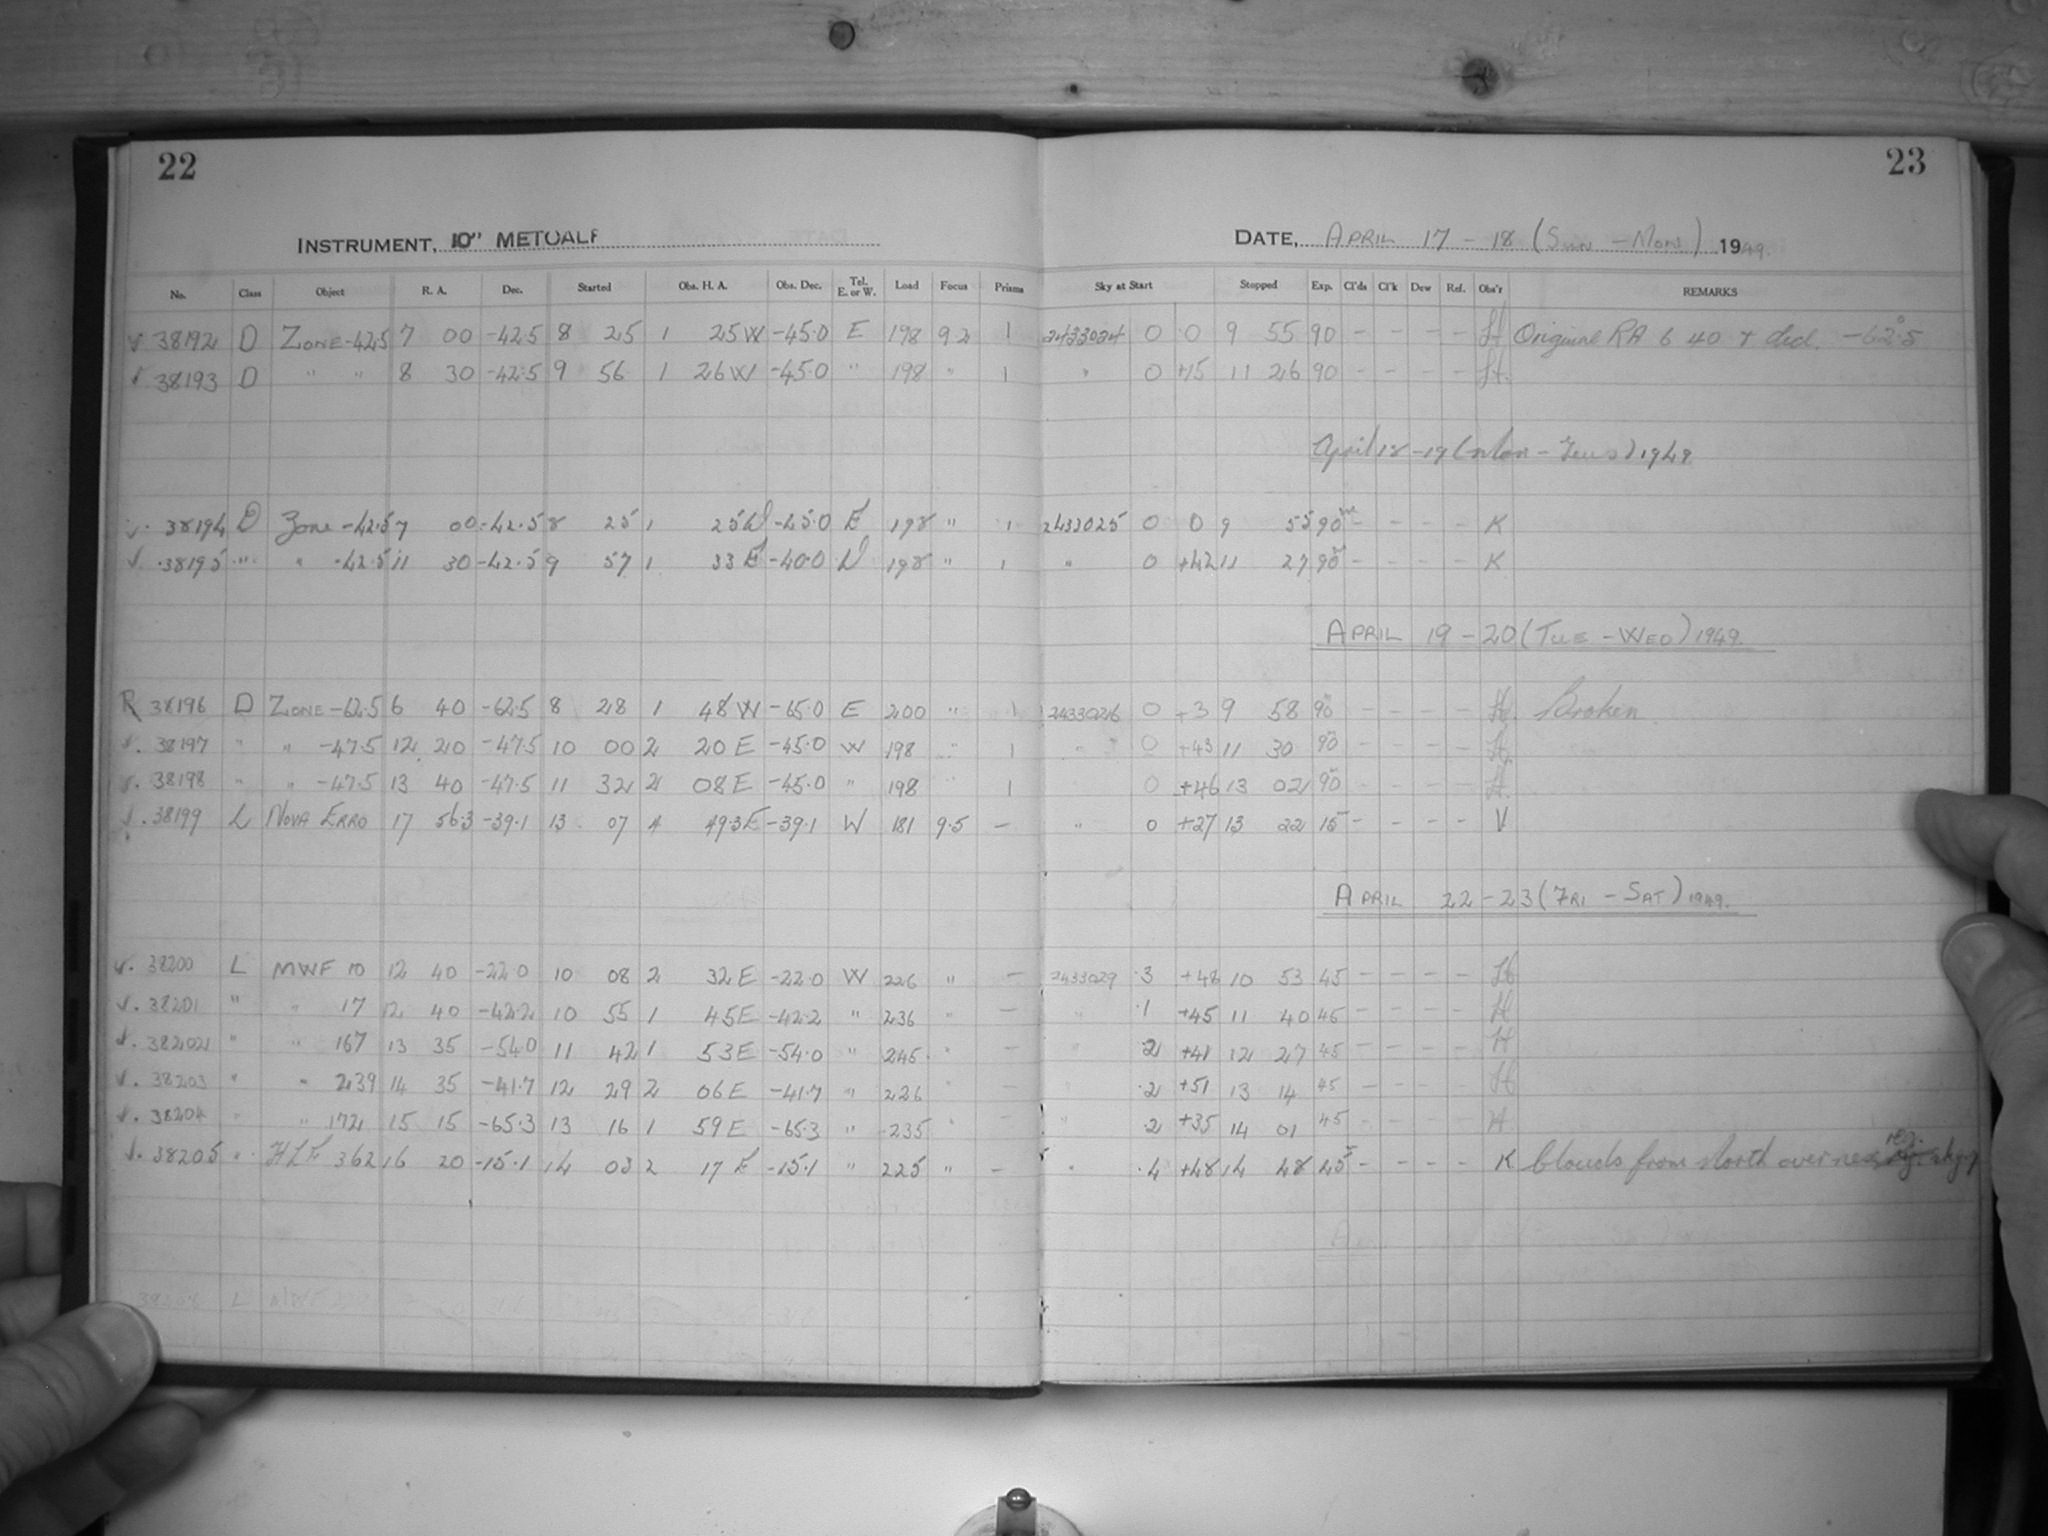 22
23
INSTRUMENT, 10" METCALF
DATE, APRIL 17 - 18 (SUN - MON) 1949.
No. Class Object R. A. Dec. Started Obs. H. A. Obs. Dec. Tel. E. or W. Load Focus Prisms Sky at Start Stopped Exp. Cl'ds Cl'k Dew Ref. Obs'r REMARKS
√ 38192 D ZONE -42.5 7 00 -42.5 8 25 1 25 W -45.0 E 198 9.2 1 2433024 0 0 9 55 90 - - - - Original RA 6 40 + decl. -62.5
√ 38193 D " " 8 30 -42.5 9 56 1 26 W -45.0 " 198 " 1 " 0 +15 11 26 90 - - - -
April 18 - 19 (Mon - Tues) 1949
√. 38194 D Zone -42.5 7 00 -42.5 8 25 1 25 W -45.0 E 198 " 1 2433025 0 0 9 55 90 - - - - K
√ .38195 " " -42.5 11 30 -42.5 9 57 1 33 E -40.0 W 198 " 1 " 0 +42 11 27 90 - - - - K
APRIL 19 - 20 (TUE - WED) 1949.
R 38196 D ZONE -62.5 6 40 -62.5 8 28 1 48 W -65.0 E 200 " 1 2433026 0 +3 9 58 90 - - - - Broken
√. 38197 " " -47.5 12 20 -47.5 10 00 2 20 E -45.0 W 198 " 1 " 0 +43 11 30 90 - - - -
√. 38198 " " -47.5 13 40 -47.5 11 32 2 08 E -45.0 " 198 " 1 0 +46 13 02 90 - - - -
√. 38199 L NOVA ERRO 17 56.3 -39.1 13 07 4 49.3 E -39.1 W 181 9.5 - " 0 +27 13 22 15 - - - - V
APRIL 22 - 23 (FRI - SAT) 1949.
√. 38200 L MWF 10 12 40 -22.0 10 08 2 32 E -22.0 W 226 " - 2433029 .3 +48 10 53 45 - - - - H
√. 38201 " " 17 12 40 -42.2 10 55 1 45 E -42.2 " 236 " - " .1 +45 11 40 45 - - - - H
√. 38202 " " 167 13 35 -54.0 11 42 1 53 E -54.0 " 245 " - " .2 +41 12 27 45 - - - - H
√. 38203 " " 239 14 35 -41.7 12 29 2 06 E -41.7 " 226 " - " .2 +51 13 14 45 - - - - H
√. 38204 " " 172 15 15 -65.3 13 16 1 59 E -65.3 " 235 " - " .2 +35 14 01 45 - - - - H
√. 38205 " 362 16 20 -15.1 14 03 2 17 E -15.1 " 225 " - " .4 +48 14 48 45 - - - - K Clouds from North over